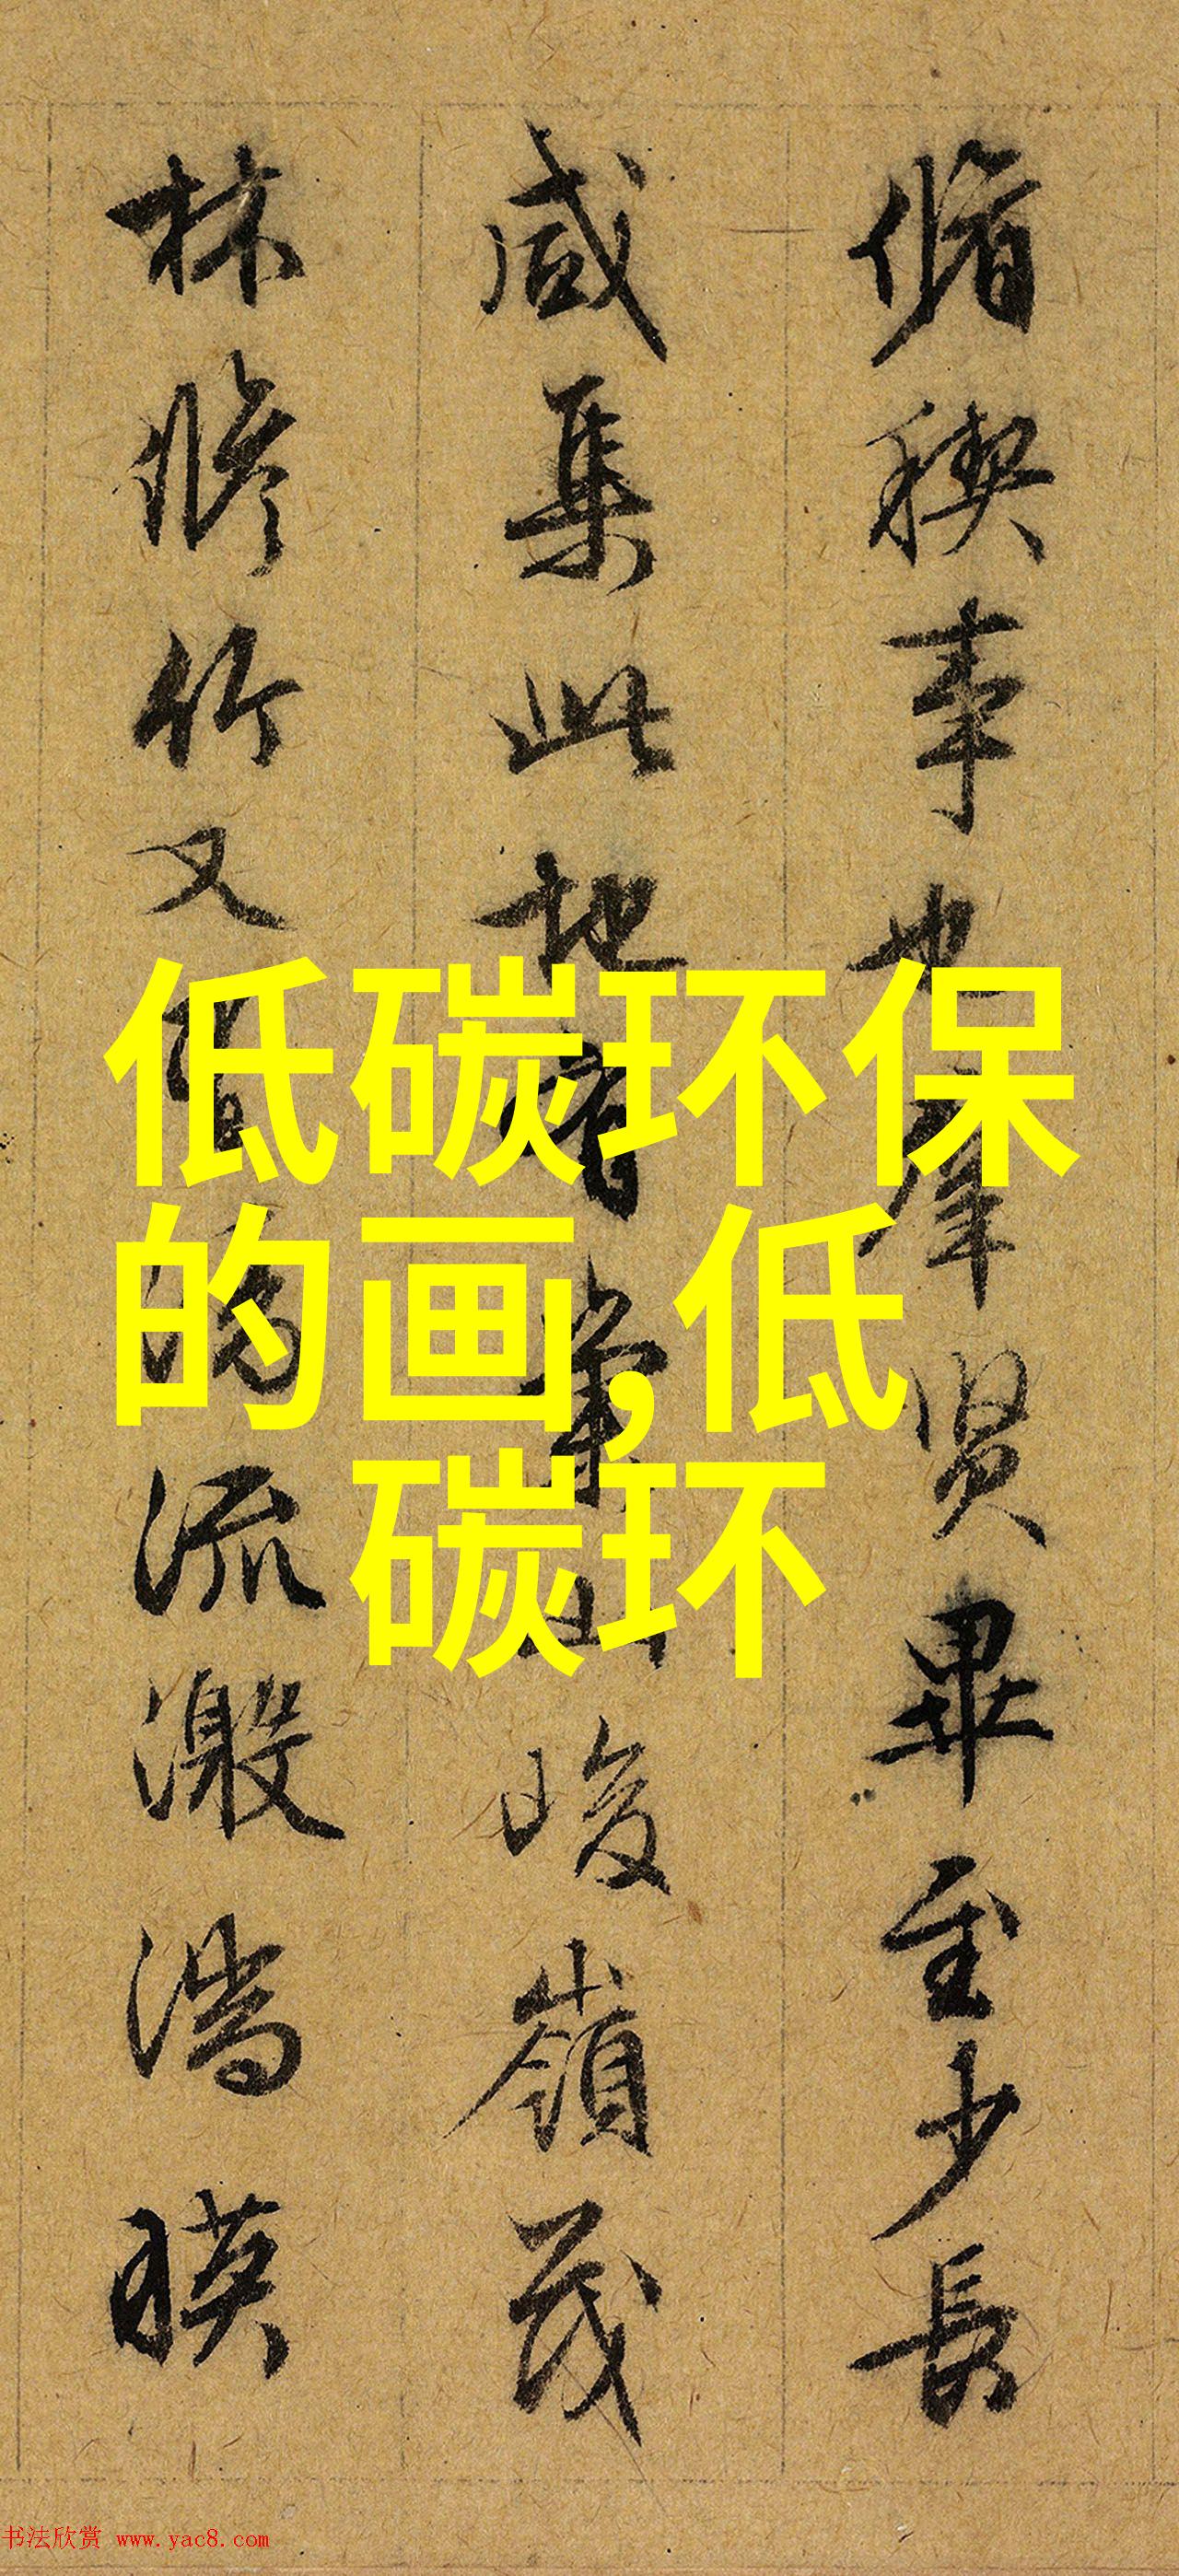 脩稧事也羣賢畢至少長
咸集此地有崇山峻嶺茂
林脩竹又有清流激湍暎
低碳环保
的画,低
碳环
书法欣赏 www.yac8.com